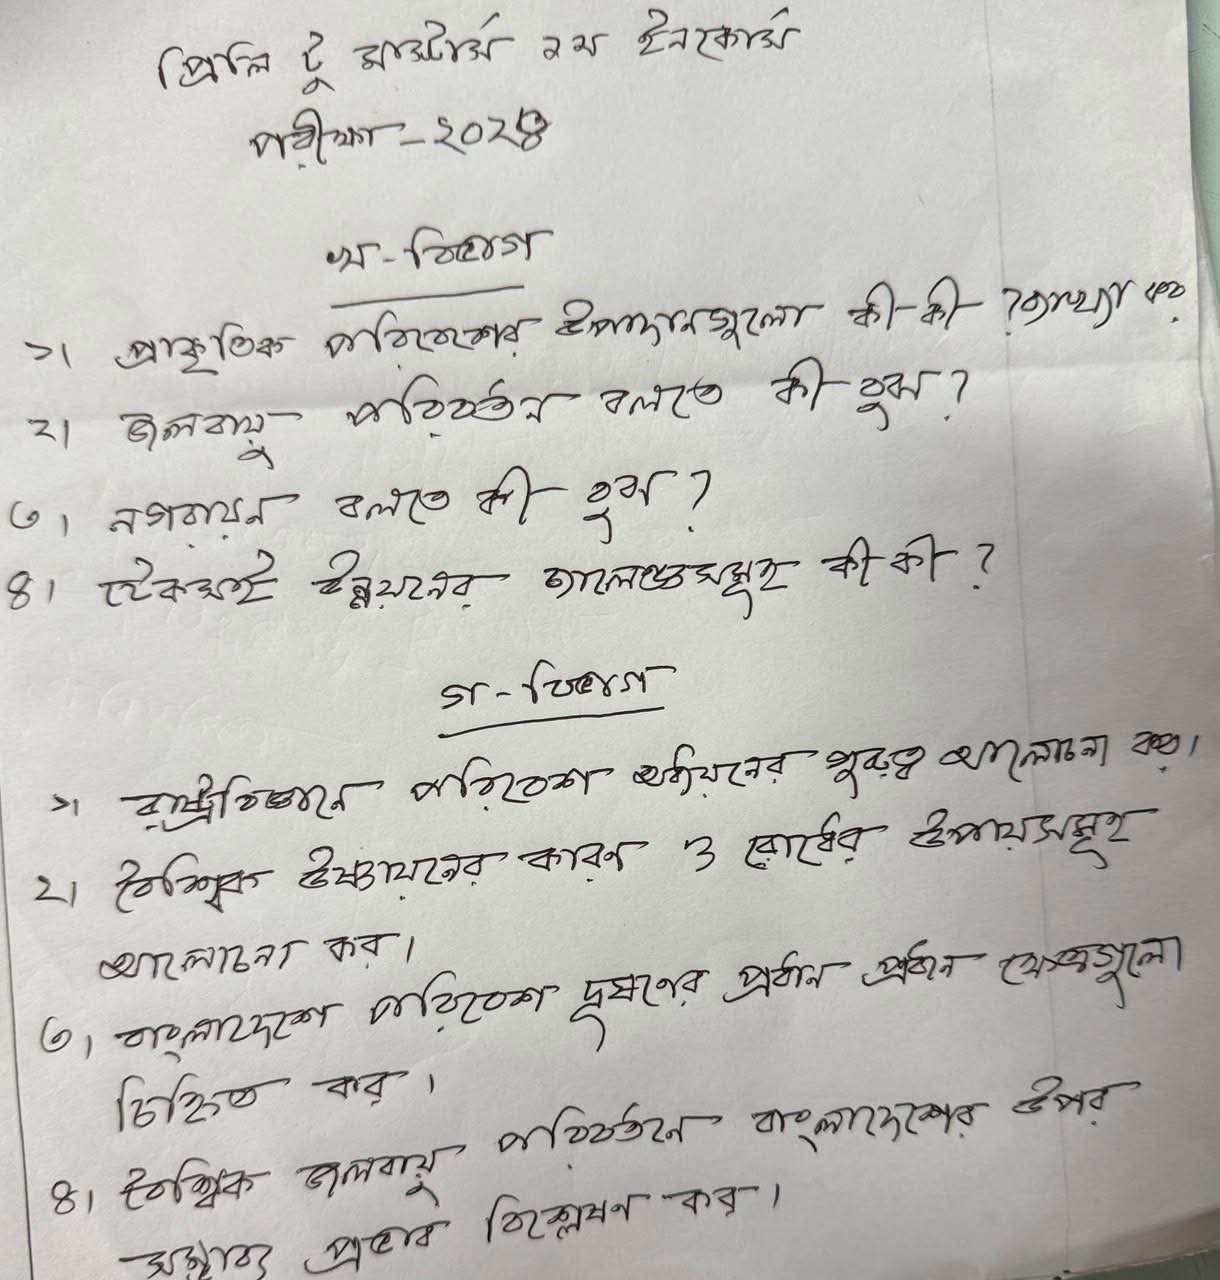 প্রিলি টু মাস্টার্স ২য় ইনকোর্স
পরীক্ষা - ২০২৪
খ - বিভাগ
১। প্রাকৃতিক পরিবেশের উপাদানগুলো কী কী ? ব্যাখ্যা কর
২। জলবায়ু পরিবর্তন বলতে কী বুঝ ?
৩। নগরায়ন বলতে কী বুঝ ?
৪। টেকসাই উন্নয়নের চ্যালেঞ্জসমূহ কী কী ?
গ - বিভাগ
১। রাষ্ট্রবিজ্ঞানে পরিবেশ অধ্যয়নের গুরুত্ব আলোচনা কর।
২। বৈশ্বিক উষ্ণায়নের কারণ ও রোধের উপায়সমূহ
আলোচনা কর।
৩। বাংলাদেশে পরিবেশ দূষণের প্রধান প্রধান ক্ষেত্রগুলো
চিহ্নিত কর।
৪। বৈশ্বিক জলবায়ু পরিবর্তনে বাংলাদেশের উপর
সম্ভাব্য প্রভাব বিশ্লেষণ কর।